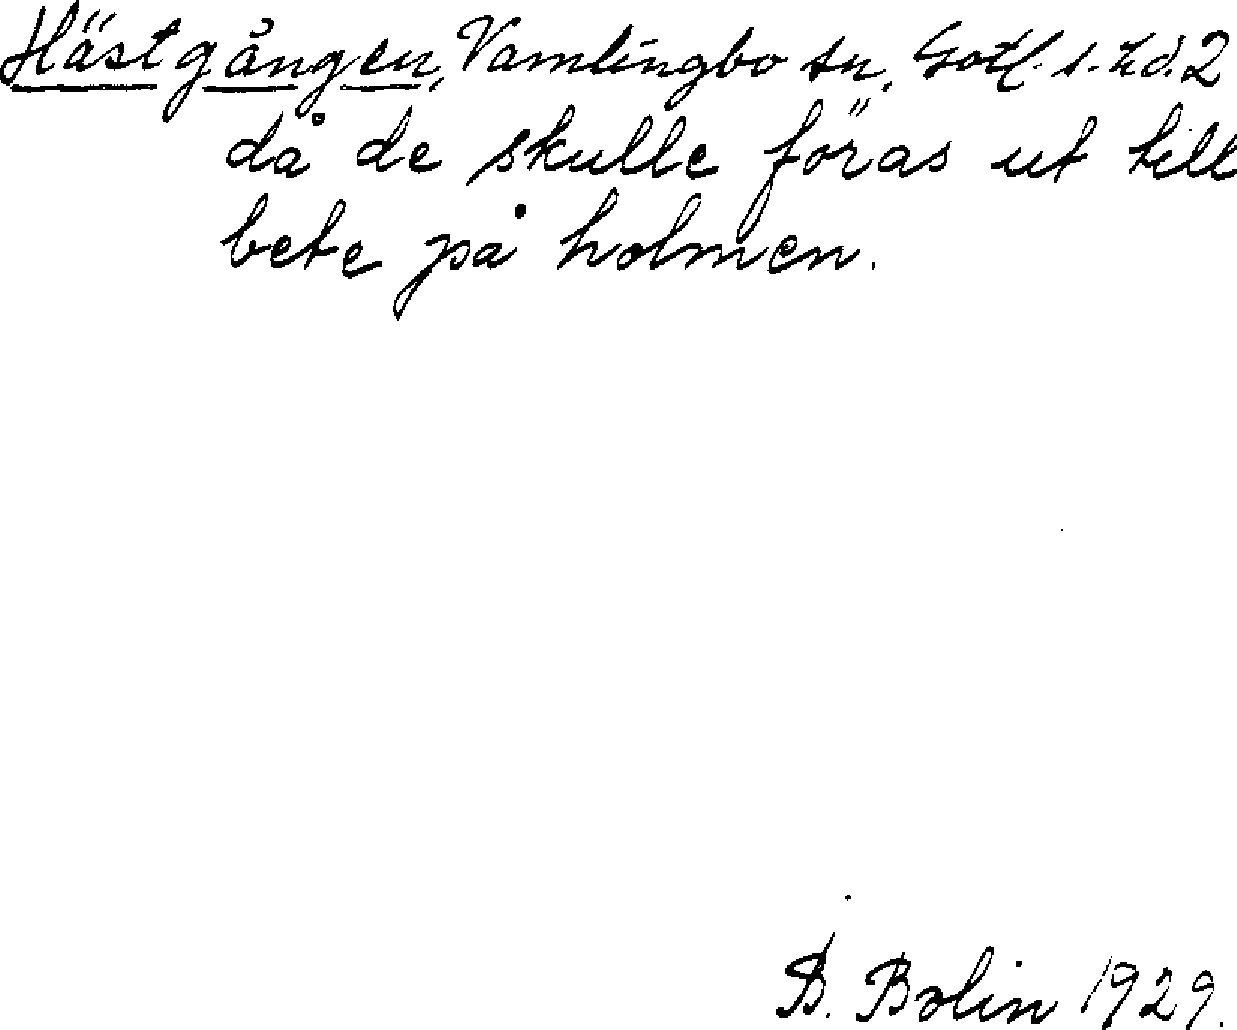 Hästgången, Vamlingbo sn, Gotl. s. hd. 2
då de skulle föras ut till
bete på holmen.
B. Bolin 1929.